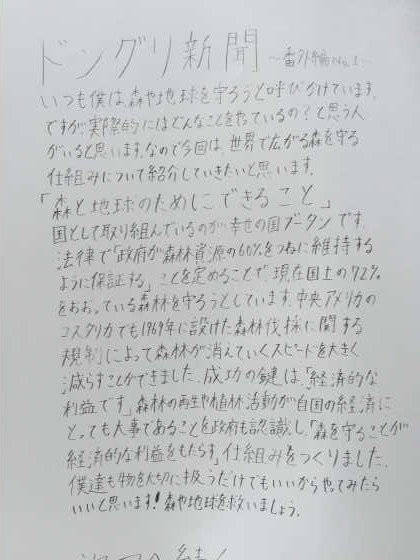 ドングリ新聞 ～番外編No.1～
いつも僕は、森や地球を守ろうと呼び分けています。
ですが、実際的にはどんなことをやっているの？と思う人
がいると思います。なので今回は、世界で広がる森を守る
仕組みについて紹介していきたいと思います。
「森と地球のためにできること」
国として取り組んでいるのが幸せの国ブータンです。
法律で「政府が森林資源の60%をつねに維持する
ように保証する」ことを定めることで、現在国土の72%
をおおっている森林を守ろうとしています。中央アメリカの
コスタリカでも1969年に設けた森林伐採に関する
規制によって森林が消えていくスピードを大きく
減らすことができました。成功の鍵は、「経済的な
利益です」森林の再生や植林活動が自国の経済に
とっても大事であることを政府も認識し「森を守ることが
経済的な利益をもたらす」仕組みをつくりました。
僕達も物を大切に扱うだけでもいいからやってみたら
いいと思います!森や地球を救いましょう。